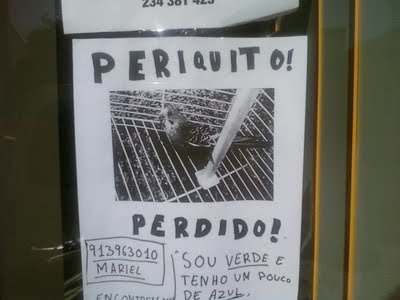 234 381 423
PERIQUITO!
PERDIDO!
913963010
MARIEL
SOU VERDE E
TENHO UM POUCO
DE AZUL.